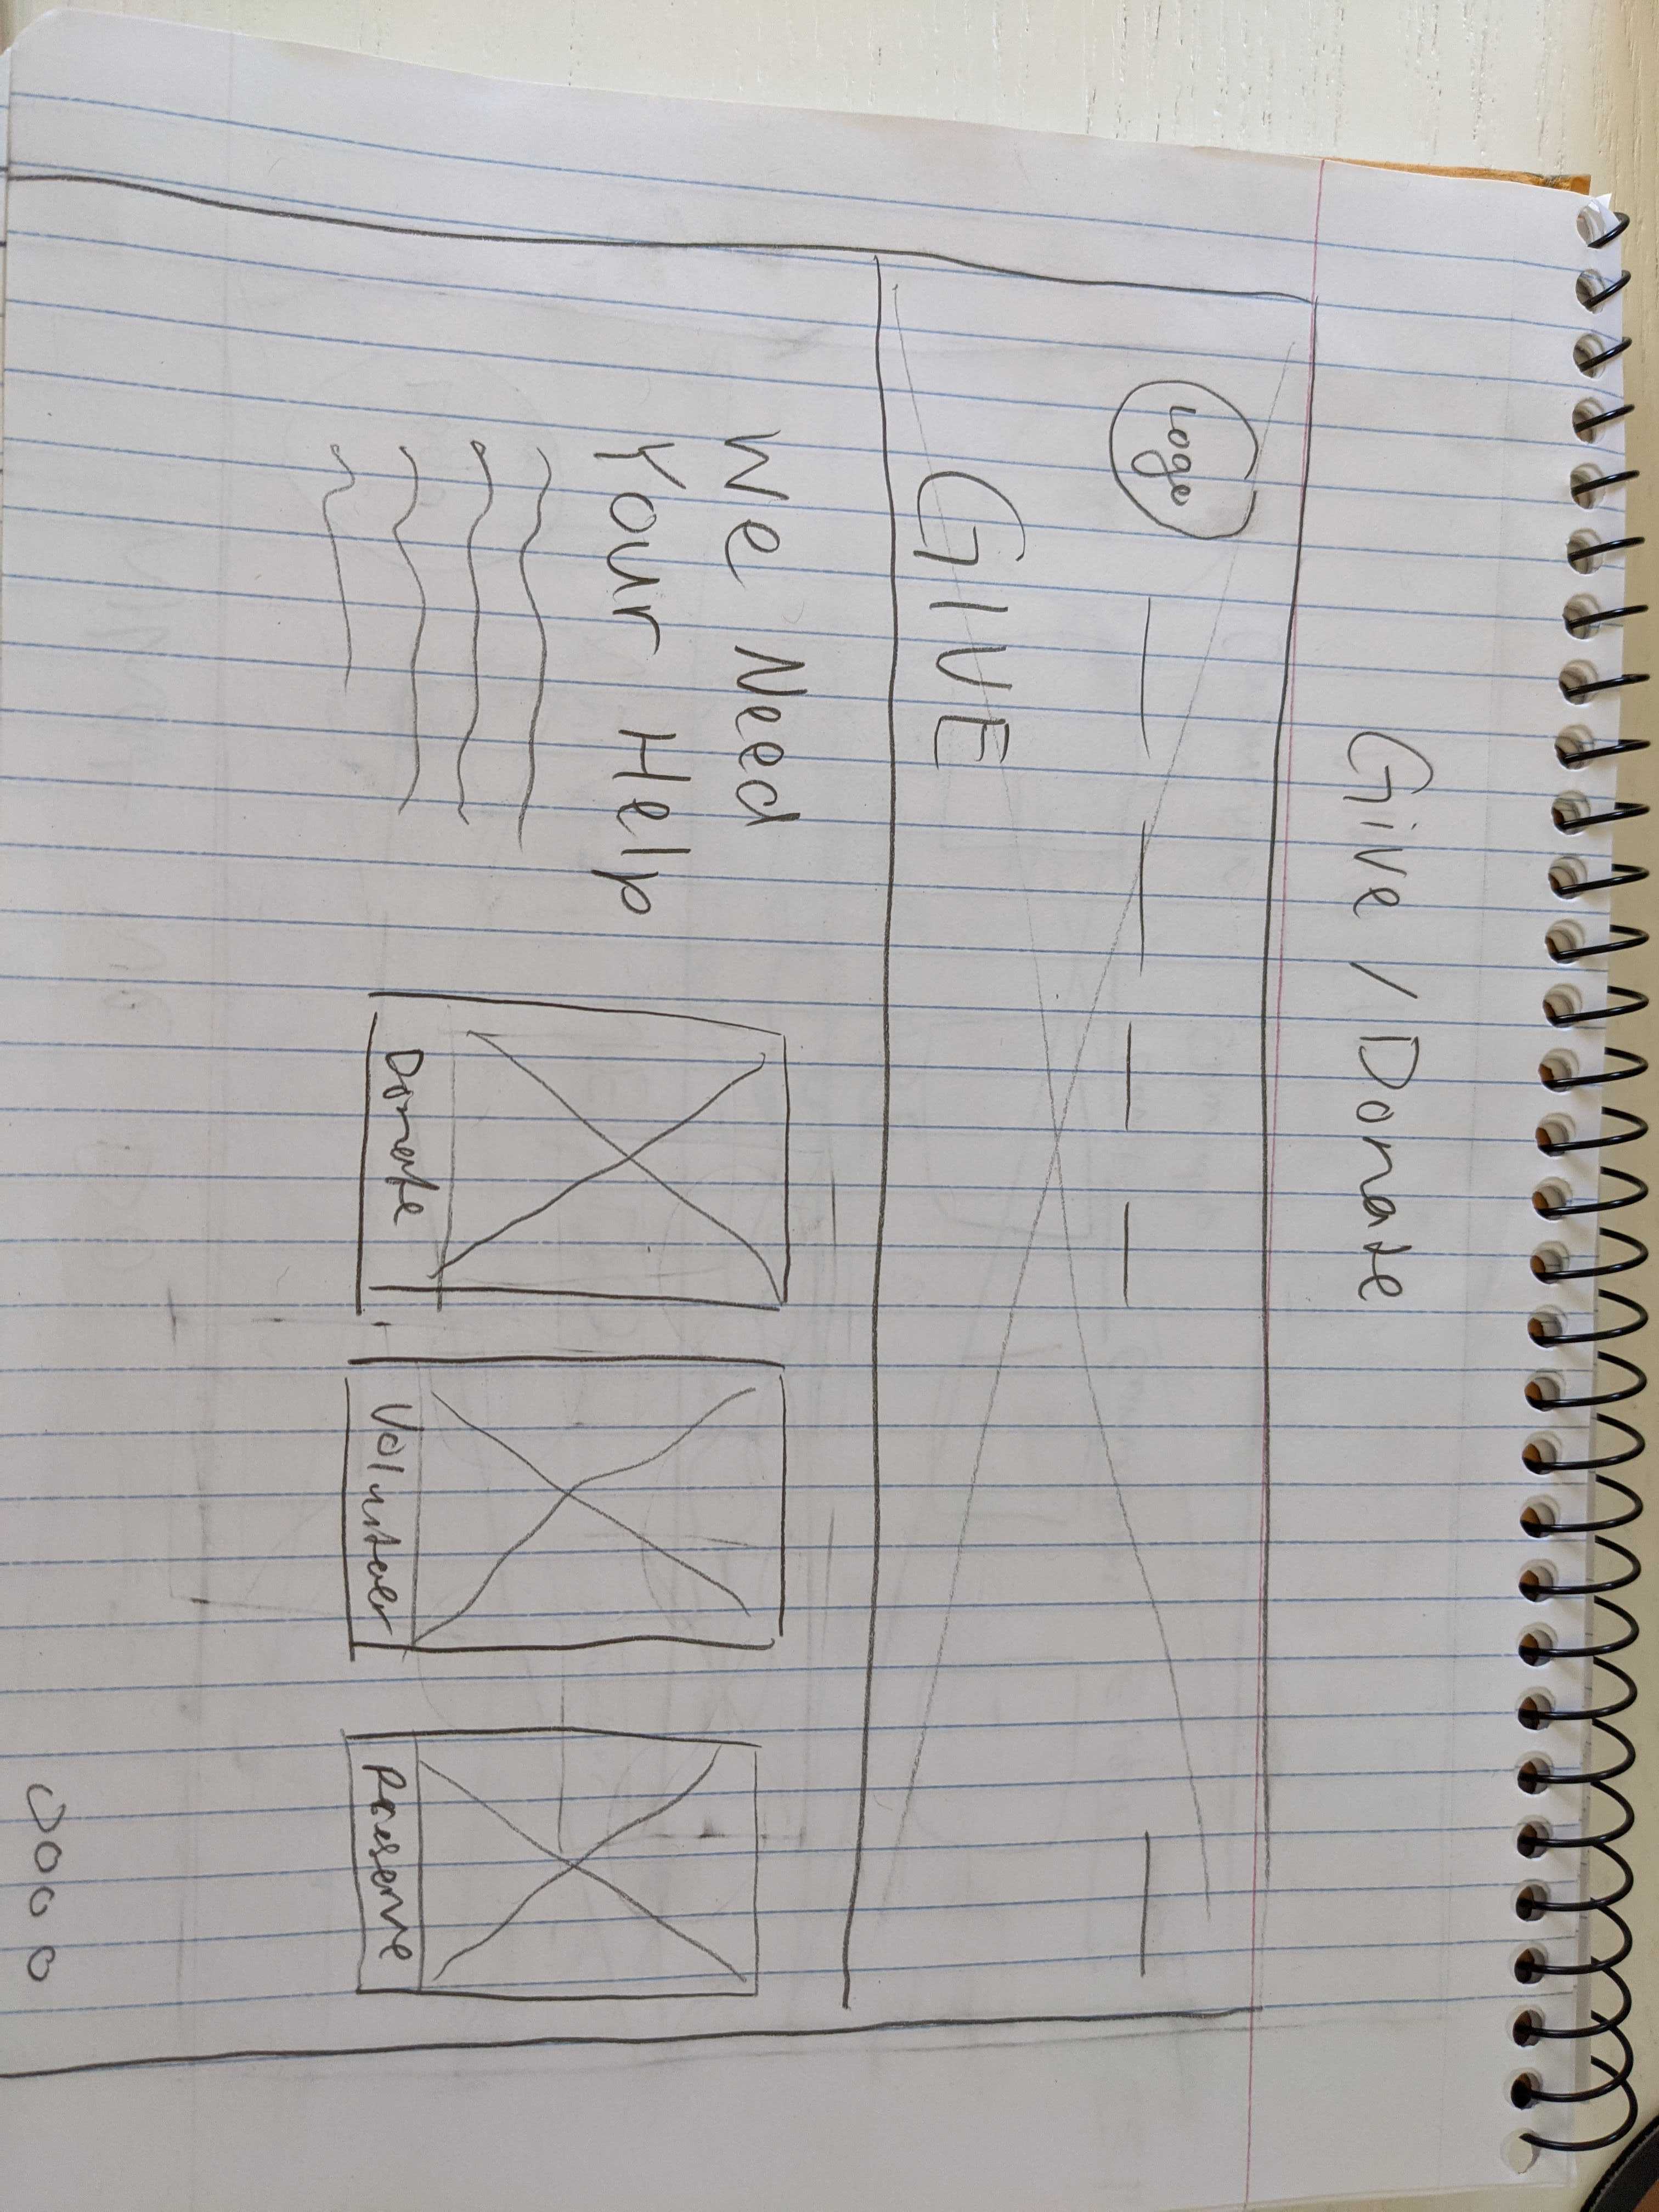 Give / Donate
Logo
GIVE
We Need
Your Help
Donate
Volunteer
Preserve